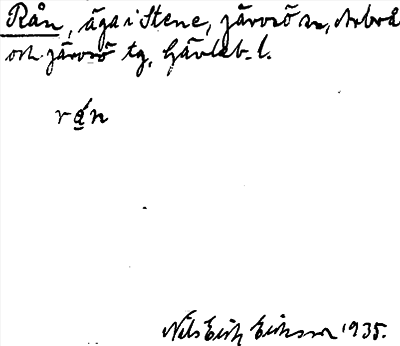 Rån, äga i Stene, Järvsö sn, Arbrå
och Järvsö tg, Gävleb. l.
rǻn
Nils Erik Eriksson 1935.